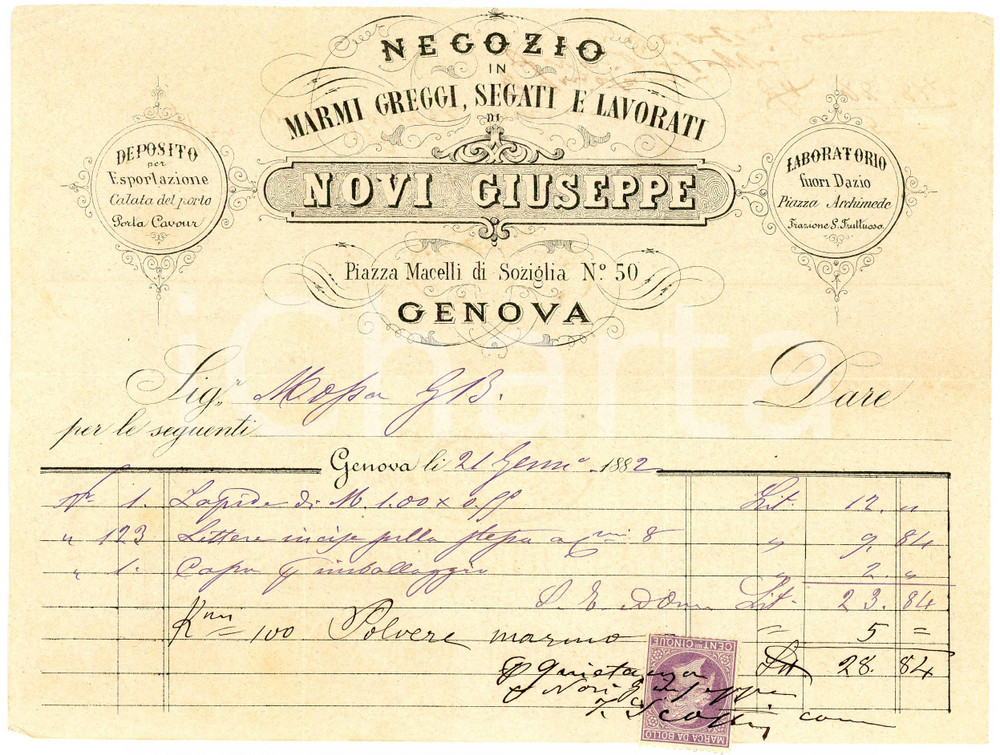 NEGOZIO
IN
MARMI GREGGI, SEGATI E LAVORATI
DI
NOVI GIUSEPPE
Piazza Macelli di Soziglia Nº 50
GENOVA
DEPOSITO
per
Esportazione
Calata del porto
Porta Cavour
LABORATORIO
fuori Dazio
Piazza Archimede
Frazione S. Fruttuoso
iCharta
Sigr. Mossa GB. Dare
per le seguenti
Genova li 21 Genno 1882
Nº 1. Lapide di M. 1.00 x 0. Lit. 12. "
" 123 Lettere incise sulla stessa a 8 " 9. 84
" 1. Cassa imballaggio " 2. "
S. E. Lit. 23. 84
Kmi 100 Polvere marmo " 5 =
Lit 28. 84
Quietanza
Novi Giuseppe
CENT. CINQUE
MARCA DA BOLLO